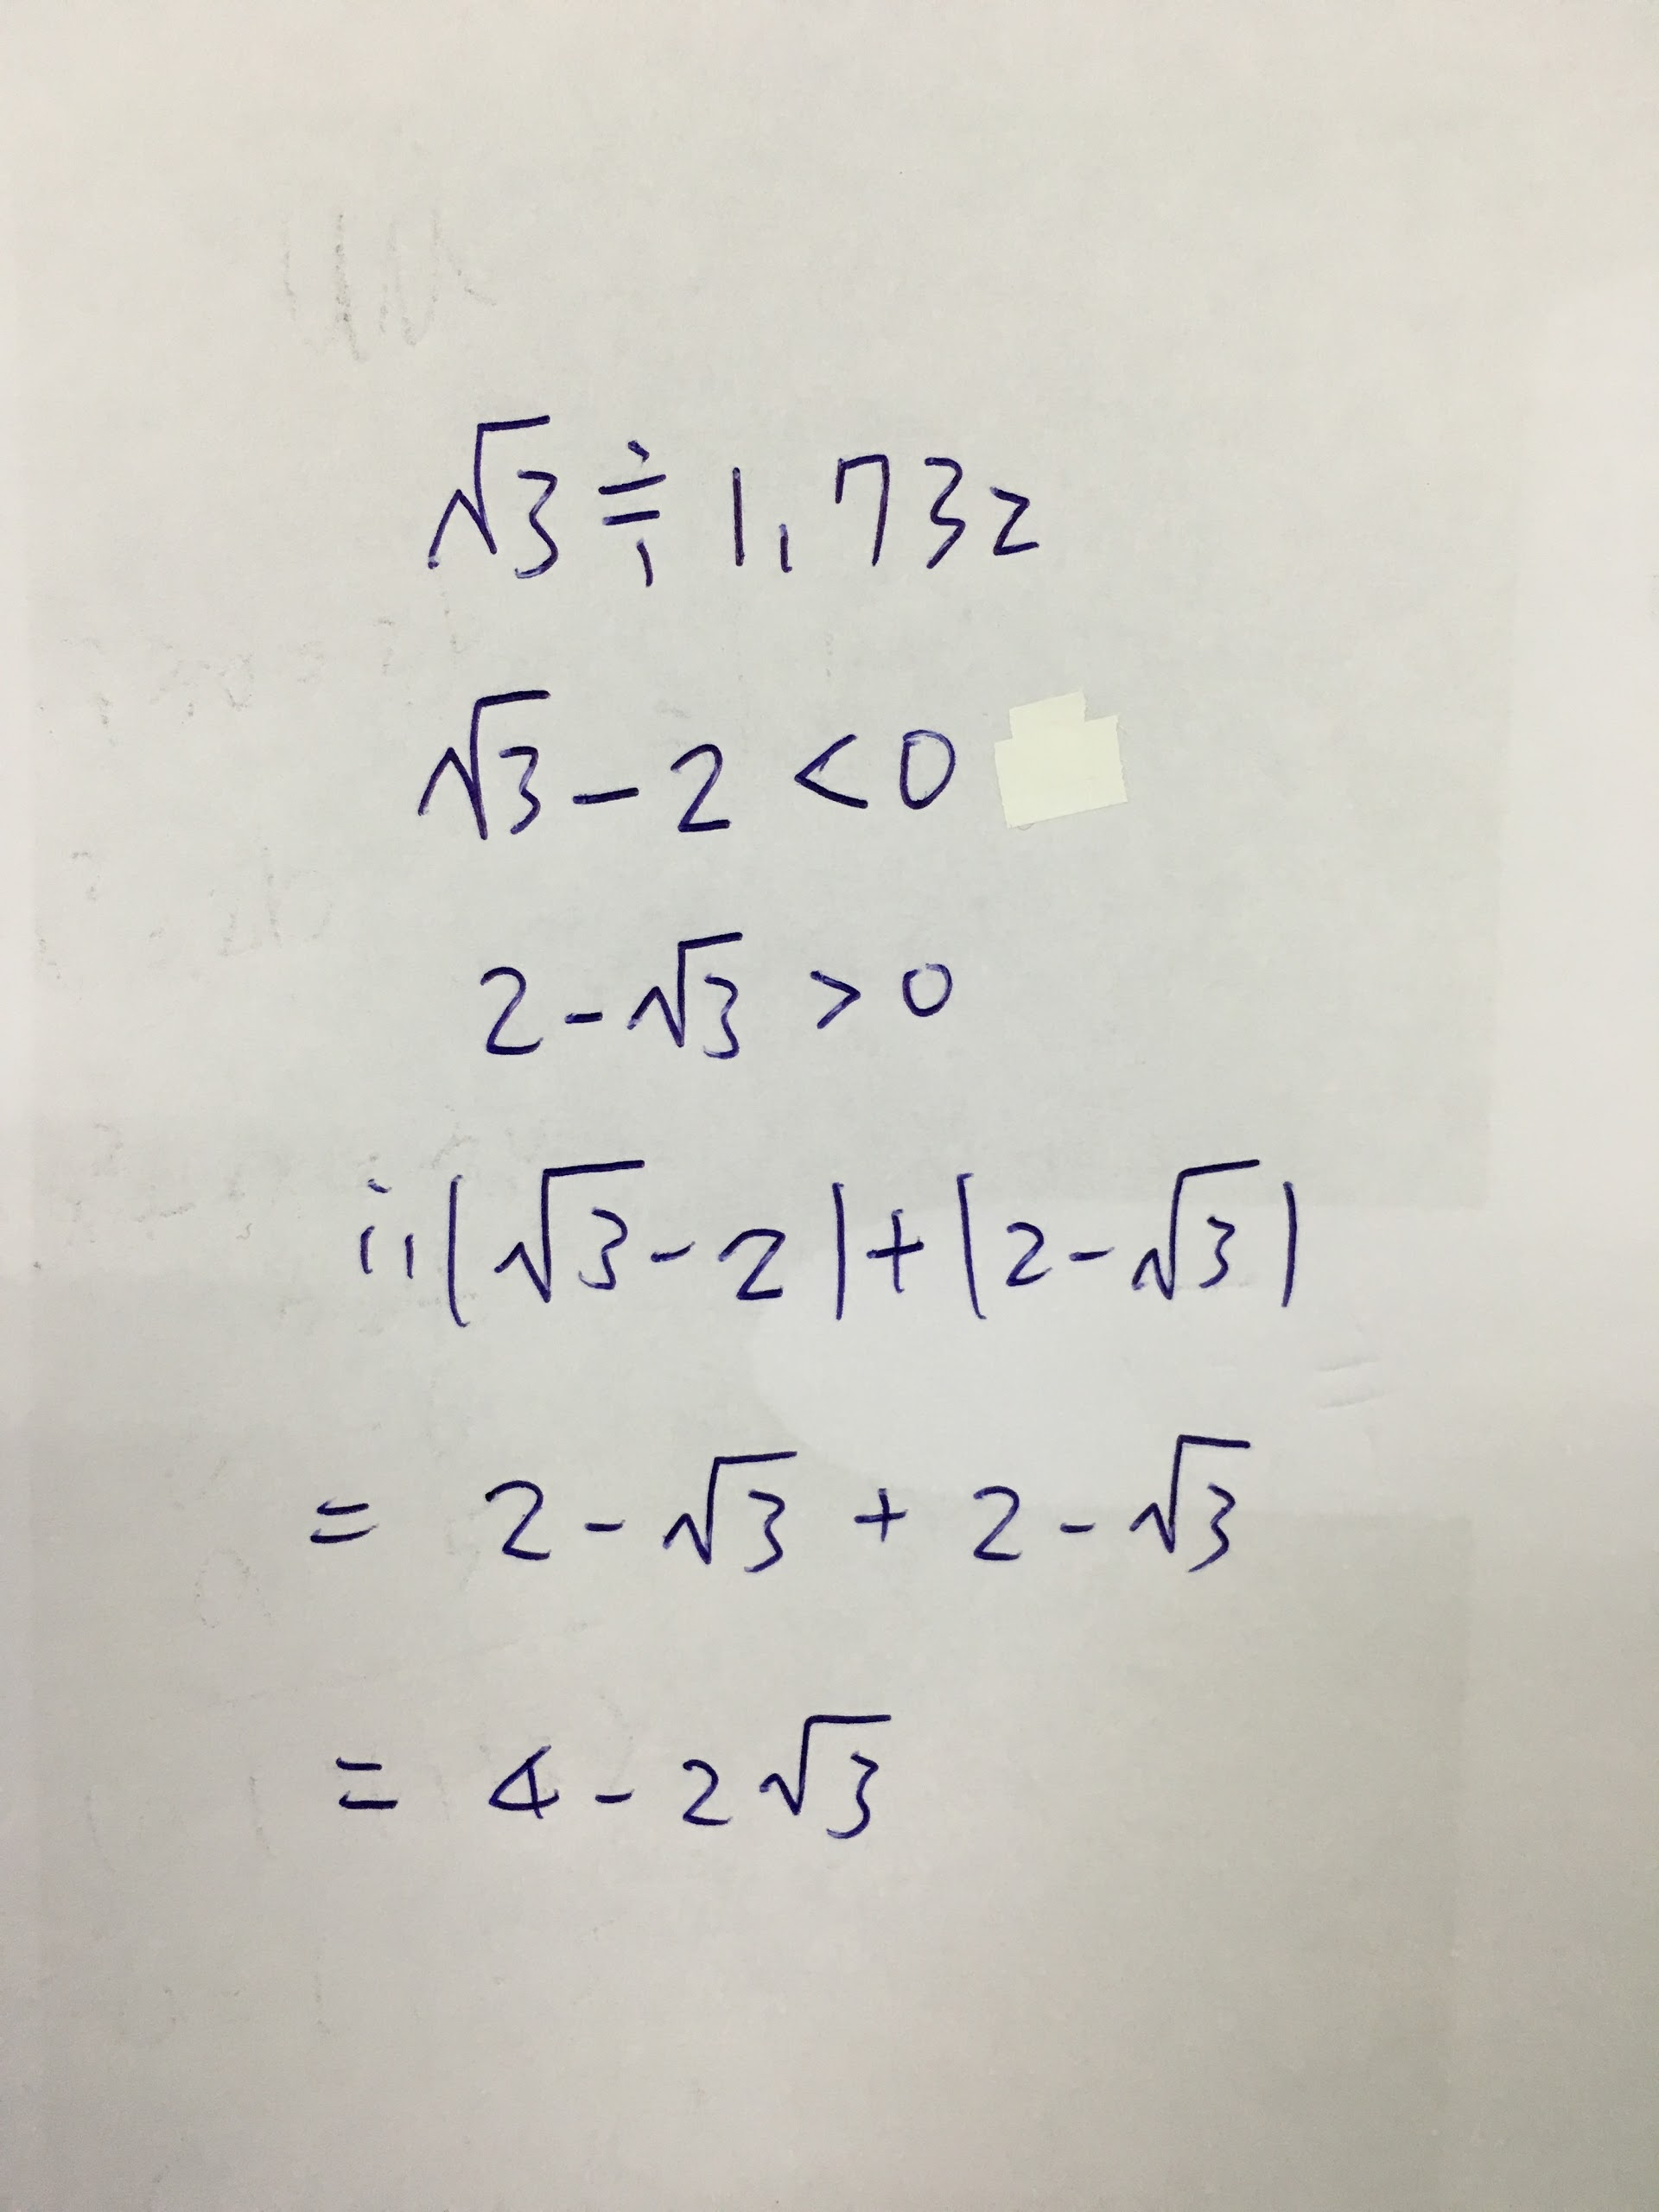 √3 ≒ 1.732
√3 - 2 < 0
2 - √3 > 0
∴ |√3 - 2| + |2 - √3|
= 2 - √3 + 2 - √3
= 4 - 2√3